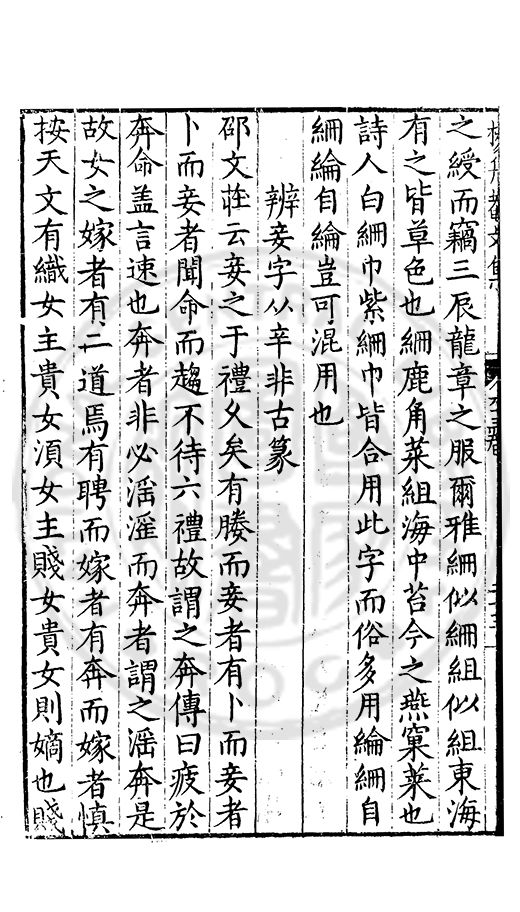 之綬而竊三辰龍章之服爾雅綸似綸組似組東海
有之皆草色也綸鹿角菜組海中苔今之燕窠菜也
詩人白綸巾紫綸巾皆合用此字而俗多用綸綸自
綸綸自綸豈可混用也
辨妾字从辛非古篆
邵文莊云妾之于禮久矣有媵而妾者有卜而妾者
卜而妾者聞命而趨不待六禮故謂之奔傳曰疲於
奔命盖言速也奔者非必淫滛而奔者謂之滛奔是
故女之嫁者有二道焉有聘而嫁者有奔而嫁者慎
按天文有織女主貴女湏女主賤女貴女則嫡也賤